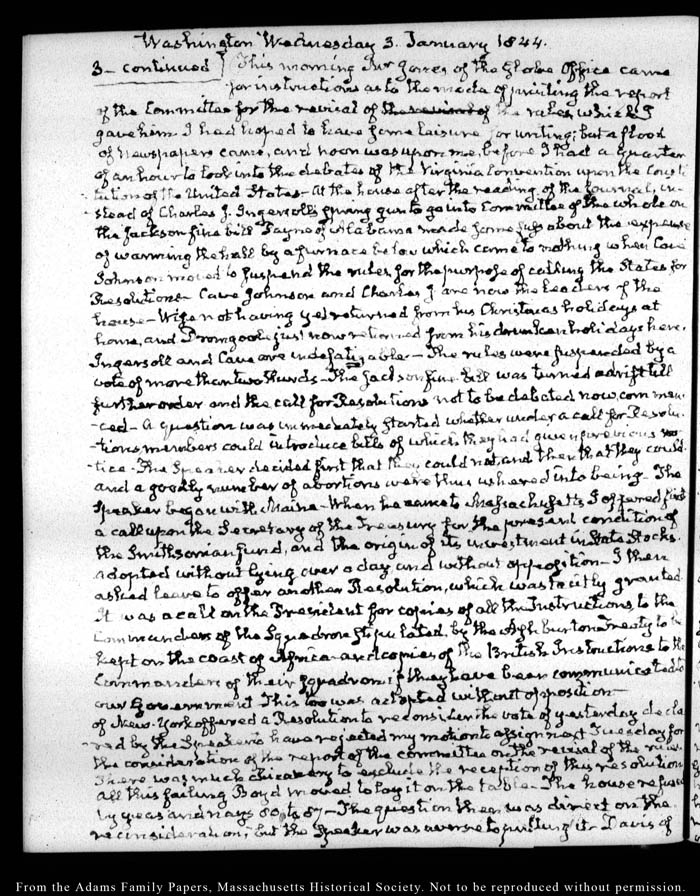 Washington Wednesday 3. January 1844.
3 — continued] This morning Mr Jones of the Globe Office came
for instructions as to the mode of printing the report
of the Committee for the revical of the revisal of the rules which I
gave him. I had hoped to have some leisure for writing; but a flood
of Newspapers came, and noon was upon me, before I had a quarter
of an hour to look into the debates of the Virginia Convention upon the Consti
tution of the United States — At the house after the reading of the Journal, in-
stead of Charles J. Ingersoll's spring gun to go into Committee of the whole on
the Jackson fine bill Payne of Alabama made some fuss about the expense
of warming the hall by a furnace below which came to nothing when Cave
Johnson moved to suspend the rules for the purpose of calling the States for
Resolutions — Cave Johnson and Charles J are now the leaders of the
house — Wise not having yet returned from his Christmas holidays at
home, and Dromgoole just now returned from his drunken holidays here,
Ingersoll and Cave are indefatigable — The rules were suspended by a
vote of more than two thirds — The Jackson fine bill was turned adrift till
further order and the call for Resolutions not to be debated now, commen-
-ced — A question was immediately started whether under a call for Resolu-
-tions members could introduce bills of which they had given previous no
-tice — The Speaker decided first that they could not, and then that they could
and a goodly number of abortions were thus ushered into being — The
Speaker began with Maine — When he came to Massachusetts I offered first
a call upon the Secretary of the Treasury for the present condition of
the Smithsonian fund, and the origin of its investment in State Stocks.
adopted without lying over a day and without opposition — I then
asked leave to offer another Resolution, which was tacitly granted
It was a call on the President for copies of all the Instructions to the
Commanders of the Squadron stipulated by the Ashburton treaty to be
kept on the coast of Africa and copies of the British Instructions to the
Commanders of their squadron if they have been communicated to
our Government This too was adopted without opposition —
of New-York offered a Resolution to reconsider the vote of yesterday decla
-red by the Speaker to have rejected my motion to assign next Tuesday for
the consideration of the report of the committee on the revisal of the rules.
There was much chicanery to exclude the reception of this resolution
All this failing Boyd moved to lay it on the table — The house refused
by yeas and nays 80 to 87 — The question then was direct on the
reconsideration; but the Speaker was averse to putting it — Davis of
From the Adams Family Papers, Massachusetts Historical Society. Not to be reproduced without permission.